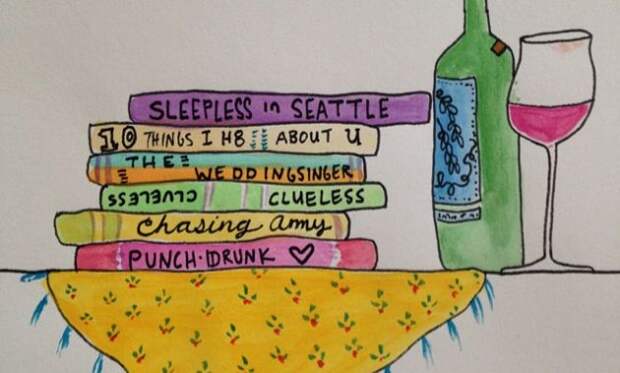 SLEEPLESS in SEATTLE
10 THINGS I H8 ABOUT U
THE
WEDDINGSINGER
CLUELESS CLUELESS
Chasing Amy
PUNCH·DRUNK ♡